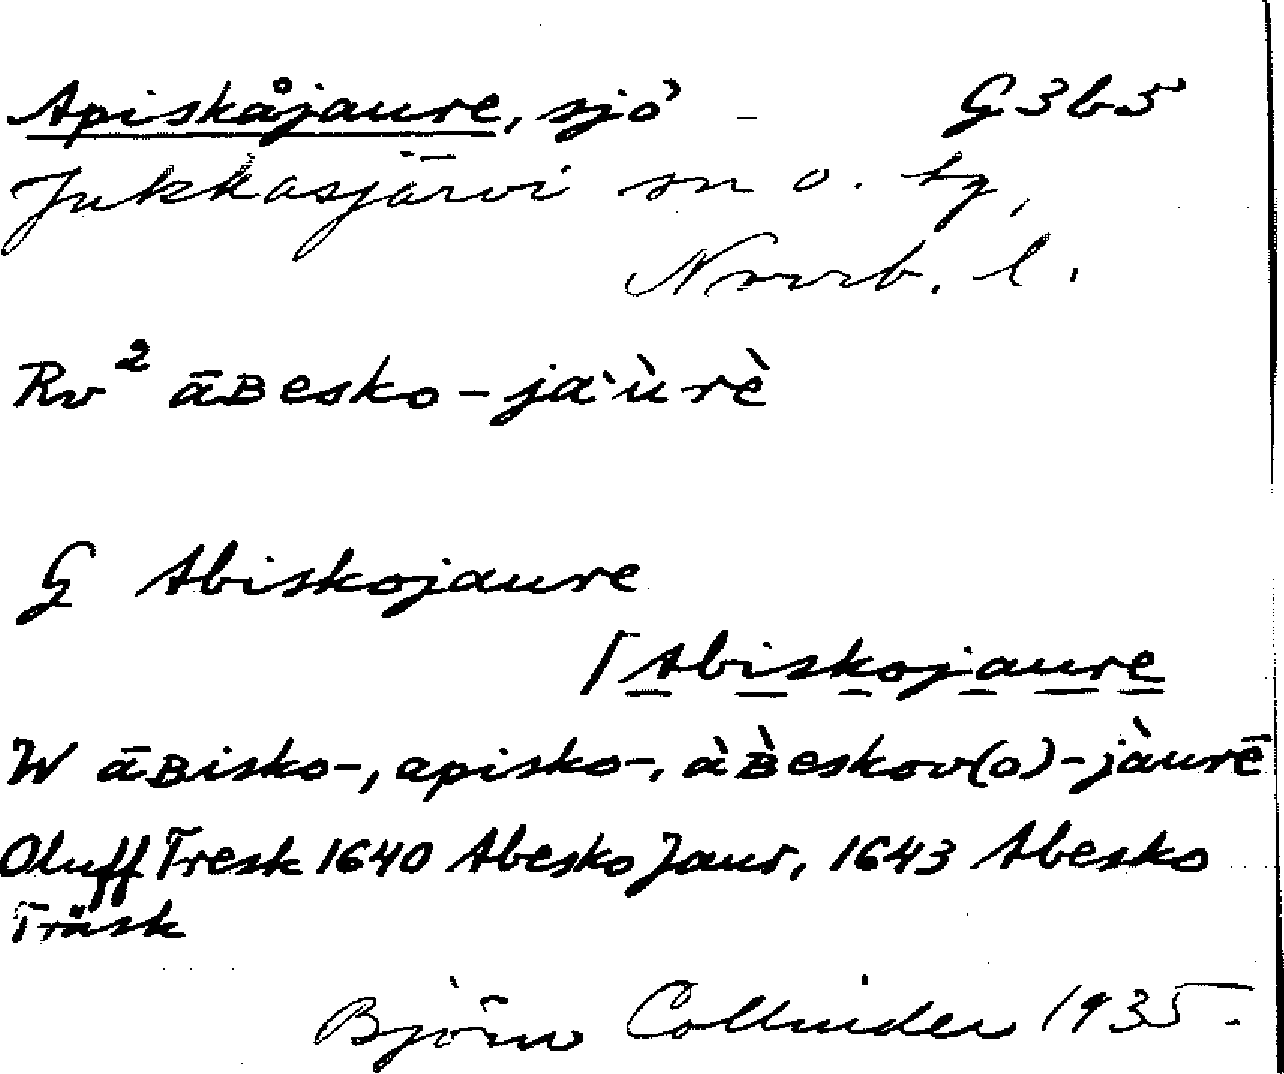 Apiskåjaure, sjö G3b5
Jukkasjärvi sn o. tg,
Norrb. l.
Rv² āʙesko-ja`ùrè
G Abiskojaure
⌈Abiskojaure
W āʙisko-, apisko-, àʙ̀eskov(o)-jàurē
Oluff Tresk 1640 Abesko Jaur, 1643 Abesko
Träsk
Björn Collinder 1935.